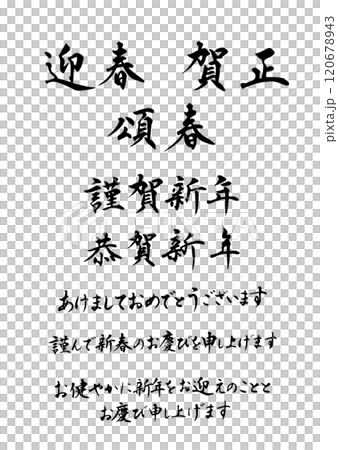 迎春 賀正
頌春
謹賀新年
恭賀新年
あけましておめでとうございます
謹んで新春のお慶びを申し上げます
お健やかに新年をお迎えのことと
お慶び申し上げます
pixta.jp - 120678943